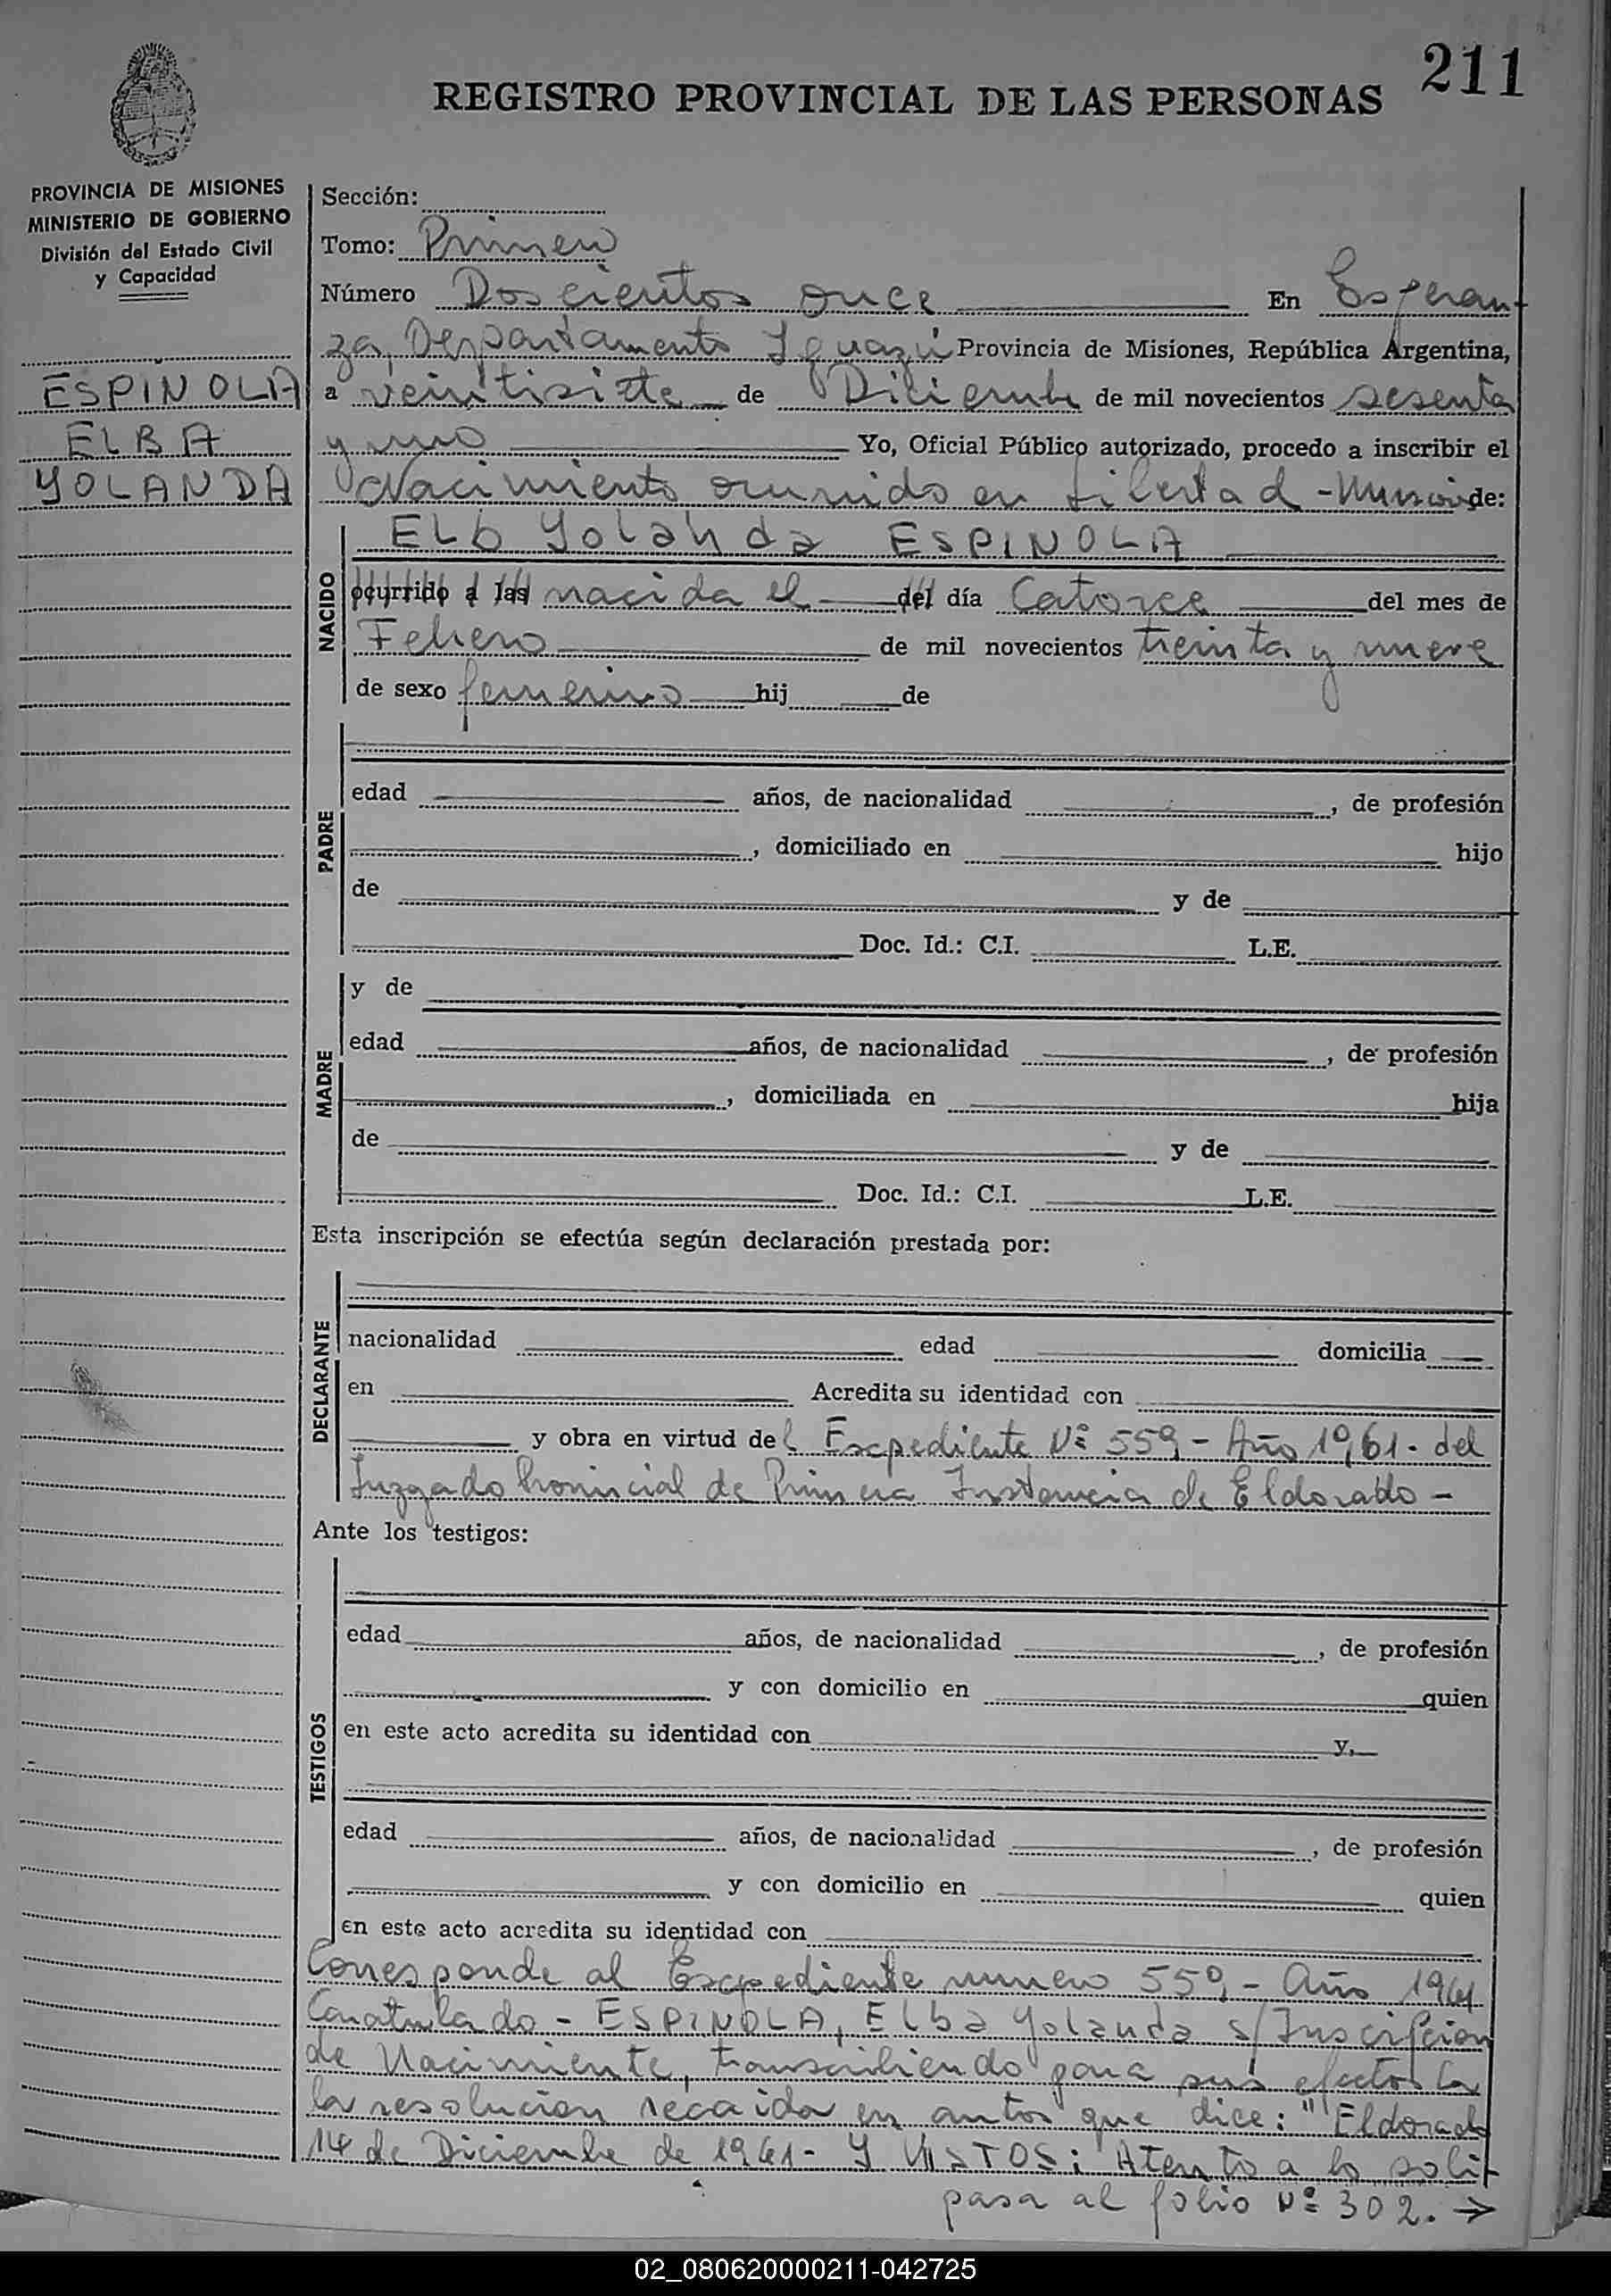 211
REGISTRO PROVINCIAL DE LAS PERSONAS
PROVINCIA DE MISIONES
MINISTERIO DE GOBIERNO
División del Estado Civil
y Capacidad
ESPINOLA
ELBA
YOLANDA
Sección:
Tomo: Primero
Número Doscientos once En Esperan-
za, Departamento Iguazú Provincia de Misiones, República Argentina,
a veintisiete de Diciembre de mil novecientos sesenta
y uno Yo, Oficial Público autorizado, procedo a inscribir el
Nacimiento ocurrido en Libertad - Misiones de:
NACIDO
ELb Yolanda ESPINOLA
ocurrido a las nacida el del día Catorce del mes de
Febrero de mil novecientos treinta y nueve
de sexo femenino hij de
PADRE
edad años, de nacionalidad , de profesión
, domiciliado en hijo
de y de
Doc. Id.: C.I. L.E.
MADRE
y de
edad años, de nacionalidad , de profesión
, domiciliada en hija
de y de
Doc. Id.: C.I. L.E.
Esta inscripción se efectúa según declaración prestada por:
DECLARANTE
nacionalidad edad domicilia
en Acredita su identidad con
y obra en virtud del Expediente Nº 559 - Año 1961. del
Juzgado Provincial de Primera Instancia de Eldorado -
Ante los testigos:
TESTIGOS
edad años, de nacionalidad , de profesión
y con domicilio en quien
en este acto acredita su identidad con y,
edad años, de nacionalidad , de profesión
y con domicilio en quien
en este acto acredita su identidad con
Corresponde al Expediente numero 559 - Año 1961
Caratulado - ESPINOLA, Elba Yolanda s/ Inscripcion
de Nacimiento, transcribiendo para sus efectos la
la resolucion recaida en autos que dice: "Eldorado
14 de Diciembre de 1961 - Y VISTOS: Atento a lo soli-
pasa al folio Nº 302. →
02_080620000211-042725